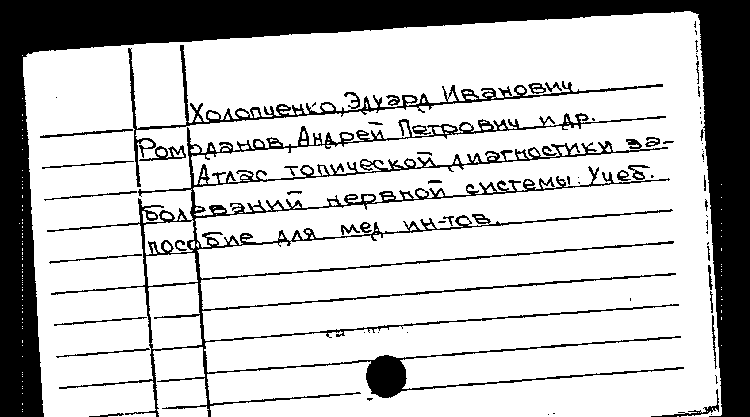 Холопченко, Эдуард Иванович
Ромоданов, Андрей Петрович и др.
Атлас топической диагностики за-
болеваний нервной системы: Учеб.
пособие для мед. ин-тов.